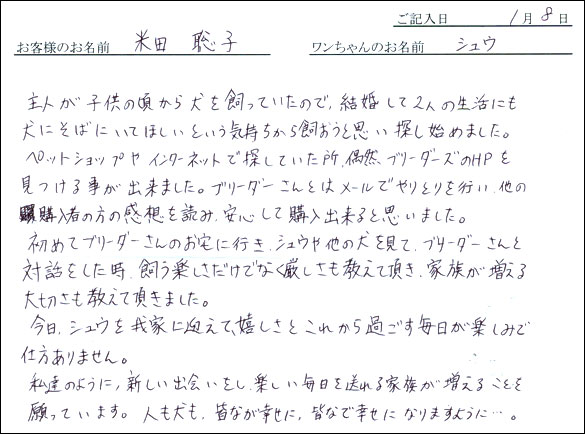 ご記入日 1月8日
お客様のお名前 米田 聡子 ワンちゃんのお名前 シュウ
主人が子供の頃から犬を飼っていたので、結婚して2人の生活にも
犬にそばにいてほしいという気持ちから飼おうと思い探し始めました。
ペットショップやインターネットで探していた所、偶然、ブリーダーズのHPを
見つける事が出来ました。ブリーダーさんとはメールでやりとりを行い、他の
購入者の方の感想を読み、安心して購入出来ると思いました。
初めてブリーダーさんのお宅に行き、シュウや他の犬を見て、ブリーダーさんと
対話をした時、飼う楽しさだけでなく厳しさも教えて頂き、家族が増える
大切さも教えて頂きました。
今日、シュウを我家に迎えて、嬉しさとこれから過ごす毎日が楽しみで
仕方ありません。
私達のように、新しい出会いをし、楽しい毎日を送れる家族が増えることを
願っています。人も犬も、皆なが幸せに、皆なで幸せになりますように…。